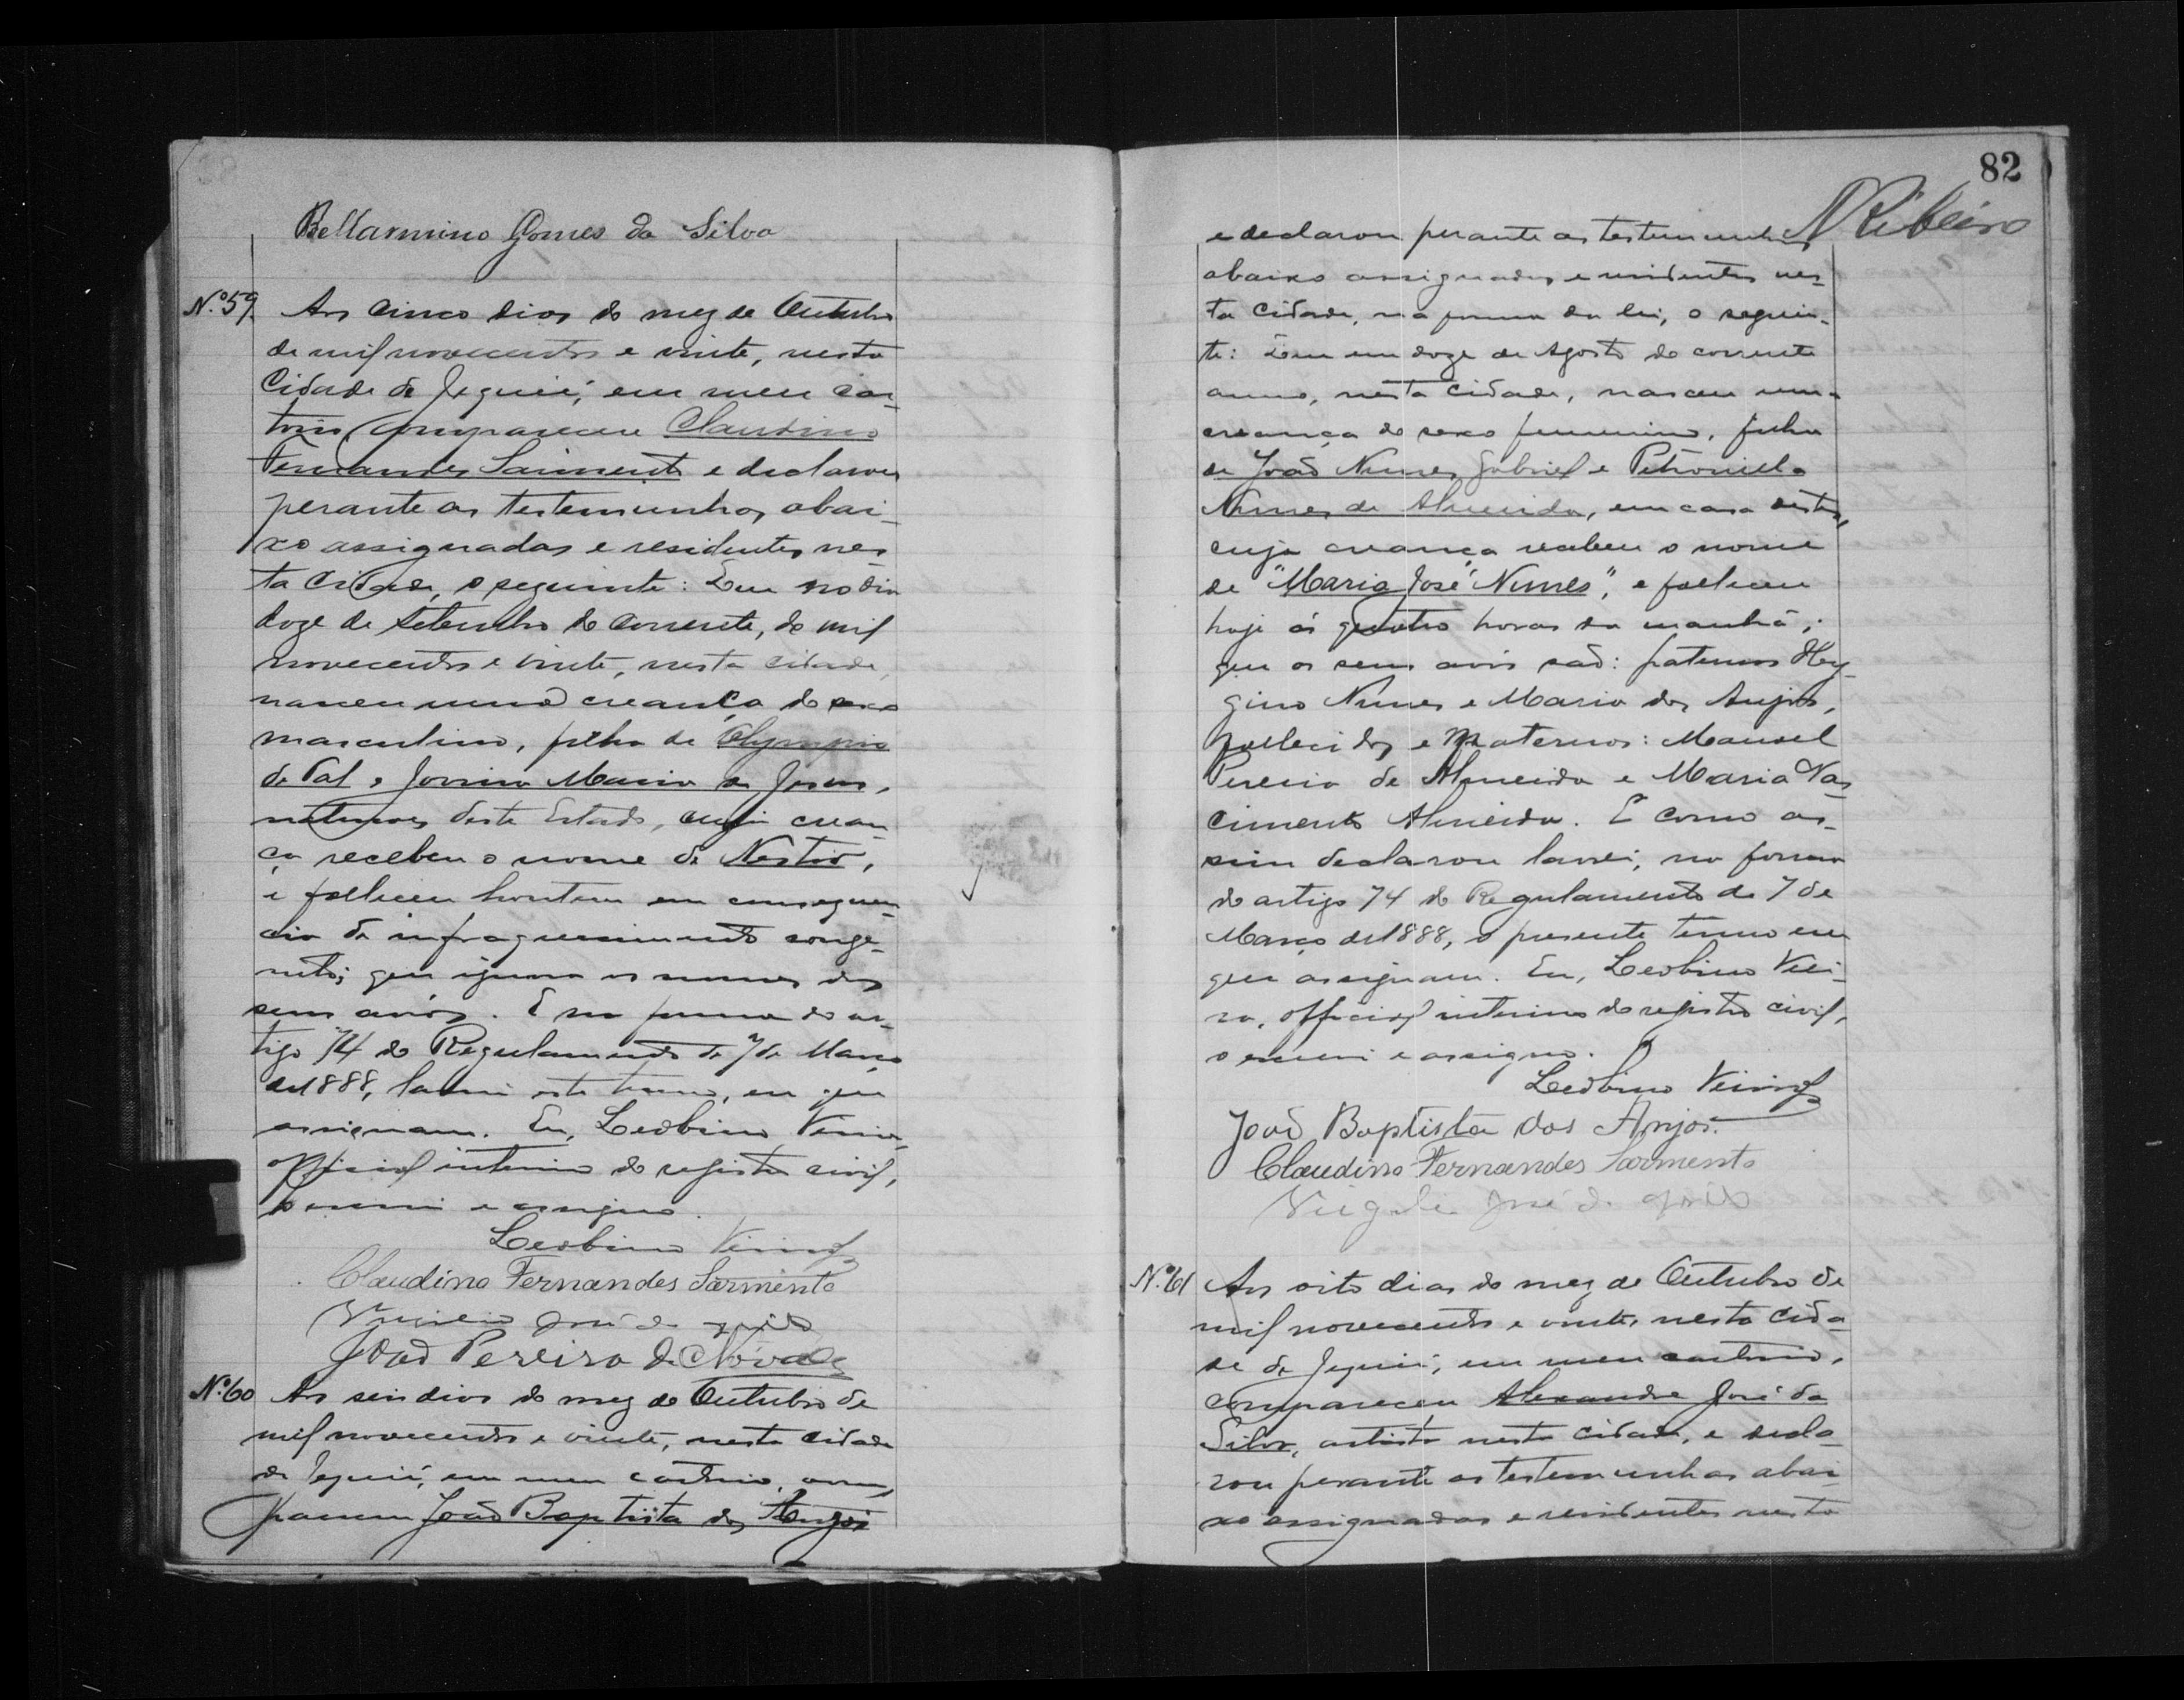 Bellarmino Gomes da Silva
Nº.59. Aos cinco dias do mez de Outubro
de mil novecentos e vinte, nesta
Cidade de Jequié, em meu car-
torio, compareceu Claudino
Fernandes Sarmento e declarou
perante as testemunhas abai-
xo assignadas e residentes nes-
ta Cidade, o seguinte: Que no dia
doze de Setembro do corrente, de mil
novecentos e vinte, nesta cidade,
nasceu uma creança do sexo
masculino, filho de Olympio
de Tal e Jovina Maria de Jesus,
naturaes deste Estado, cuja crean-
ça receben o nome de Nestor,
e falleceu hontem em consequen-
cia de infraquecimento conge-
nito; que ignora os nomes dos
seus avós. E na forma do ar-
tigo 74 do Regulamento de 7 de Março
de 1888, lavrei este termo, em que
assignam. Eu, Leobino Vieira,
official interino do registro civil,
o escrevi e assigno.
Leobino Vieira
Claudino Fernandes Sarmento
José da
João Pereira de Novaes
Nº.60 Aos seis dias do mez de Outubro de
mil novecentos e vinte, nesta cidade
de Jequié, em meu cartorio, com-
pareceu João Baptista dos Anjos
82
N Ribeiro
e declarou perante as testemunhas
abaixo assignadas e residentes nes-
ta Cidade, na forma da lei, o seguin-
te: Que em doze de Agosto do corrente
anno, nesta cidade, nasceu uma
creança do sexo feminino, filha
de João Nunes Gabriel e Petronilla
Nunes de Almeida, em casa destes,
cuja creança recebeu o nome
de "Maria José Nunes", e falleceu
hoje ás quatro horas da manhã;
que os seus avós são: paternos Hy-
gino Nunes e Maria dos Anjos,
fallecidos e Maternos: Manoel
Pereira de Almeida e Maria Nas-
cimento Almeida. E como as-
sim declarou lavrei, na forma
do artigo 74 do Regulamento de 7 de
Março de 1888, o presente termo em
que assignam. Eu, Leobino Viei-
ra, official interino do registro civil,
o escrevi e assigno.
Leobino Vieira
João Baptista dos Anjos.
Claudino Fernandes Sarmento
Virgilio José da
Nº.61 Aos oito dias do mez de Outubro de
mil novecentos e vinte, nesta cida-
de de Jequié, em meu cartorio,
compareceu Alexandre José da
Silva, artista nesta cidade, e decla-
rou perante as testemunhas abai-
xo assignadas e residentes nesta